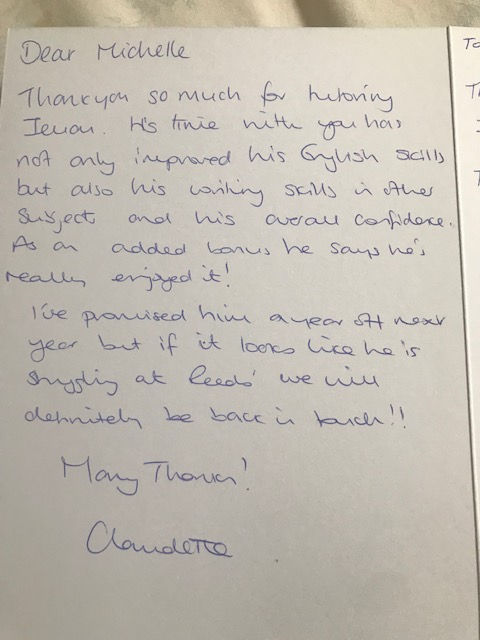 Dear Michelle
Thankyou so much for tutoring
Ieuan. His time with you has
not only improved his English skills
but also his writing skills in other
subject and his overall confidence.
As an added bonus he says he's
really enjoyed it!
I've promised him a year off next
year but if it looks like he is
struggling at Reeds' we will
definitely be back in touch!!
Many Thanks!
Claudette
To